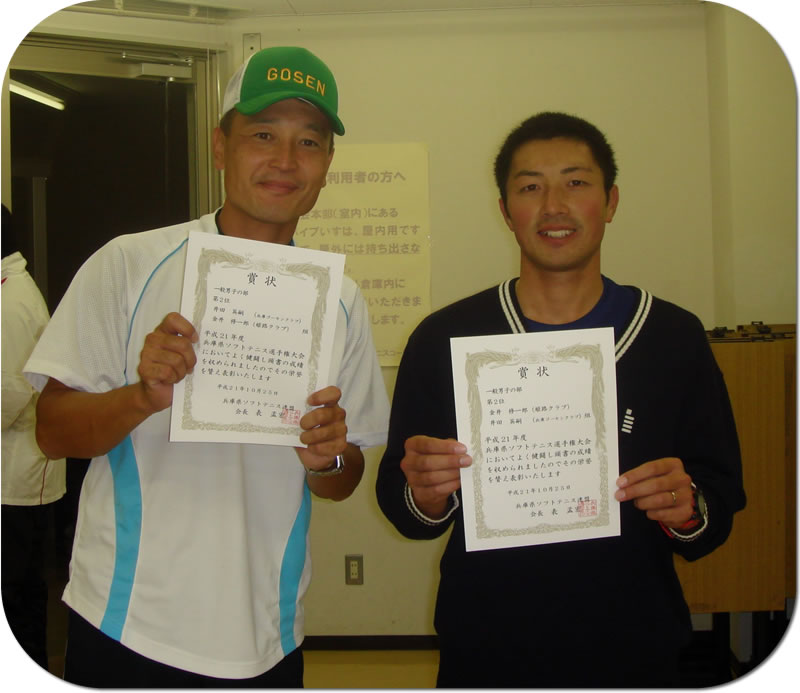 GOSEN
利用者の方へ
本部(室内)にある
パイプいすは、屋内用です
屋外には持ち出さな
倉庫内に
いただきま
します。
賞状
一般男子の部
第2位
井田 英嗣 (兵庫ゴーセンクラブ)
金井 修一郎(姫路クラブ) 組
平成21年度
兵庫県ソフトテニス選手権大会
においてよく健闘し頭書の成績
を収められましたのでその栄誉
を讃え表彰いたします
平成21年10月25日
兵庫県ソフトテニス連盟
会長 表 孟宏
賞状
一般男子の部
第2位
金井 修一郎(姫路クラブ)
井田 英嗣 (兵庫ゴーセンクラブ) 組
平成21年度
兵庫県ソフトテニス選手権大会
においてよく健闘し頭書の成績
を収められましたのでその栄誉
を讃え表彰いたします
平成21年10月25日
兵庫県ソフトテニス連盟
会長 表 孟宏